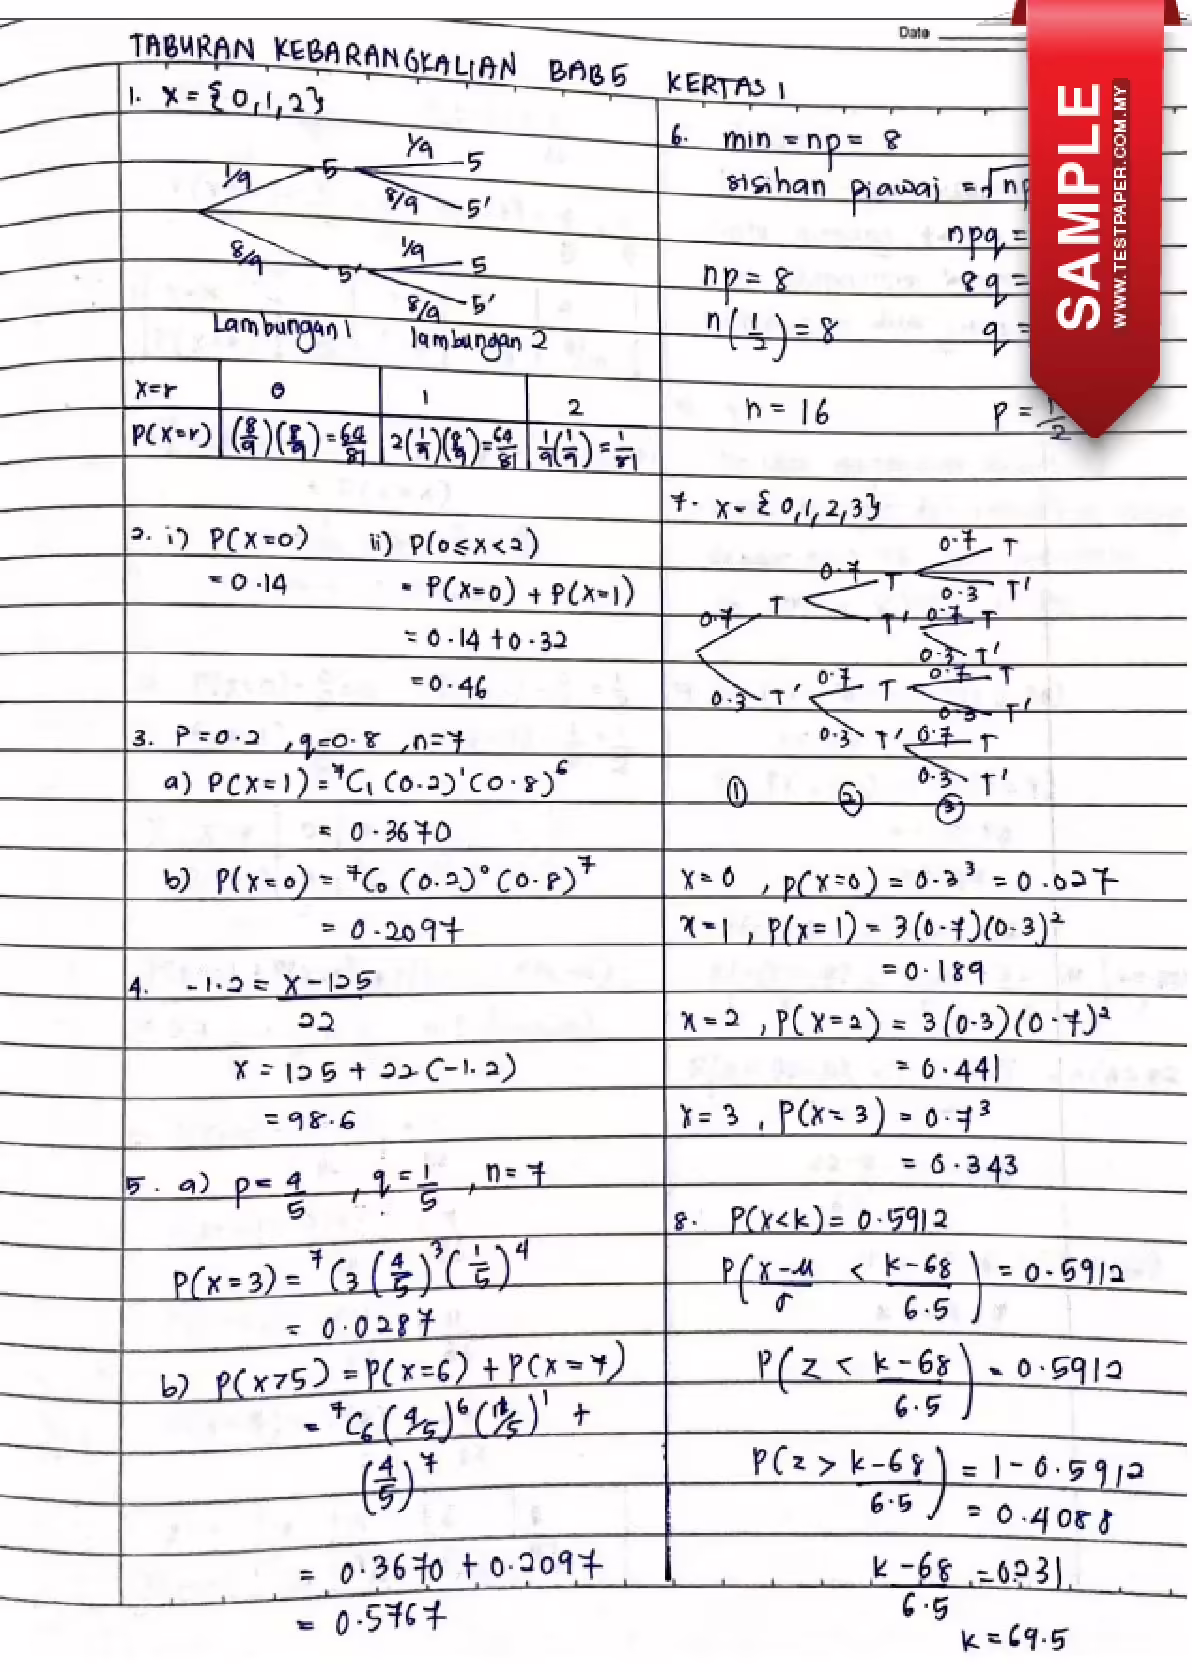 Date
TABURAN KEBARANGKALIAN BAB 5 KERTAS 1
1. X = {0,1,2}
1/9 5 1/9 5
8/9 5'
8/9 5' 1/9 5
8/9 5'
Lambungan 1 lambungan 2
X=r 0 1 2
P(X=r) (8/9)(8/9)=64/81 2(1/9)(8/9)=64/81 1/9(1/9)=1/81
2. i) P(X=0) ii) P(0≤X<2)
= 0.14 = P(X=0) + P(X=1)
= 0.14 + 0.32
= 0.46
3. P=0.2 , q=0.8 , n=7
a) P(X=1) = ⁷C₁ (0.2)¹ (0.8)⁶
= 0.3670
b) P(X=0) = ⁷C₀ (0.2)⁰ (0.8)⁷
= 0.2097
4. -1.2 = X-125/22
X = 125 + 22(-1.2)
= 98.6
5. a) p= 4/5 , q= 1/5 , n= 7
P(X=3) = ⁷C3 (4/5)³ (1/5)⁴
= 0.0287
b) P(X>5) = P(X=6) + P(X=7)
= ⁷C₆ (4/5)⁶ (1/5)¹ +
(4/5)⁷
= 0.3670 + 0.2097
= 0.5767
6. min = np = 8
sisihan piawai = √np
npq =
np = 8 8q =
n(1/2) = 8 q =
n = 16 P = 1/2
7. X= {0,1,2,3}
0.7 T
0.7 T 0.3 T'
0.7 T T' 0.7 T
0.3 T'
0.3 T' 0.7 T 0.7 T
0.3 T'
0.3 T' 0.7 T
0.3 T'
① ② ③
X=0 , P(X=0) = 0.3³ = 0.027
X=1 , P(X=1) = 3(0.7)(0.3)²
= 0.189
X=2 , P(X=2) = 3(0.3)(0.7)²
= 0.441
X=3 , P(X=3) = 0.7³
= 0.343
8. P(X<k) = 0.5912
P(X-μ/σ < k-68/6.5) = 0.5912
P(Z < k-68/6.5) = 0.5912
P(Z > k-68/6.5) = 1-0.5912
= 0.4088
k-68/6.5 = 0.231
k = 69.5
SAMPLE
WWW.TESTPAPER.COM.MY